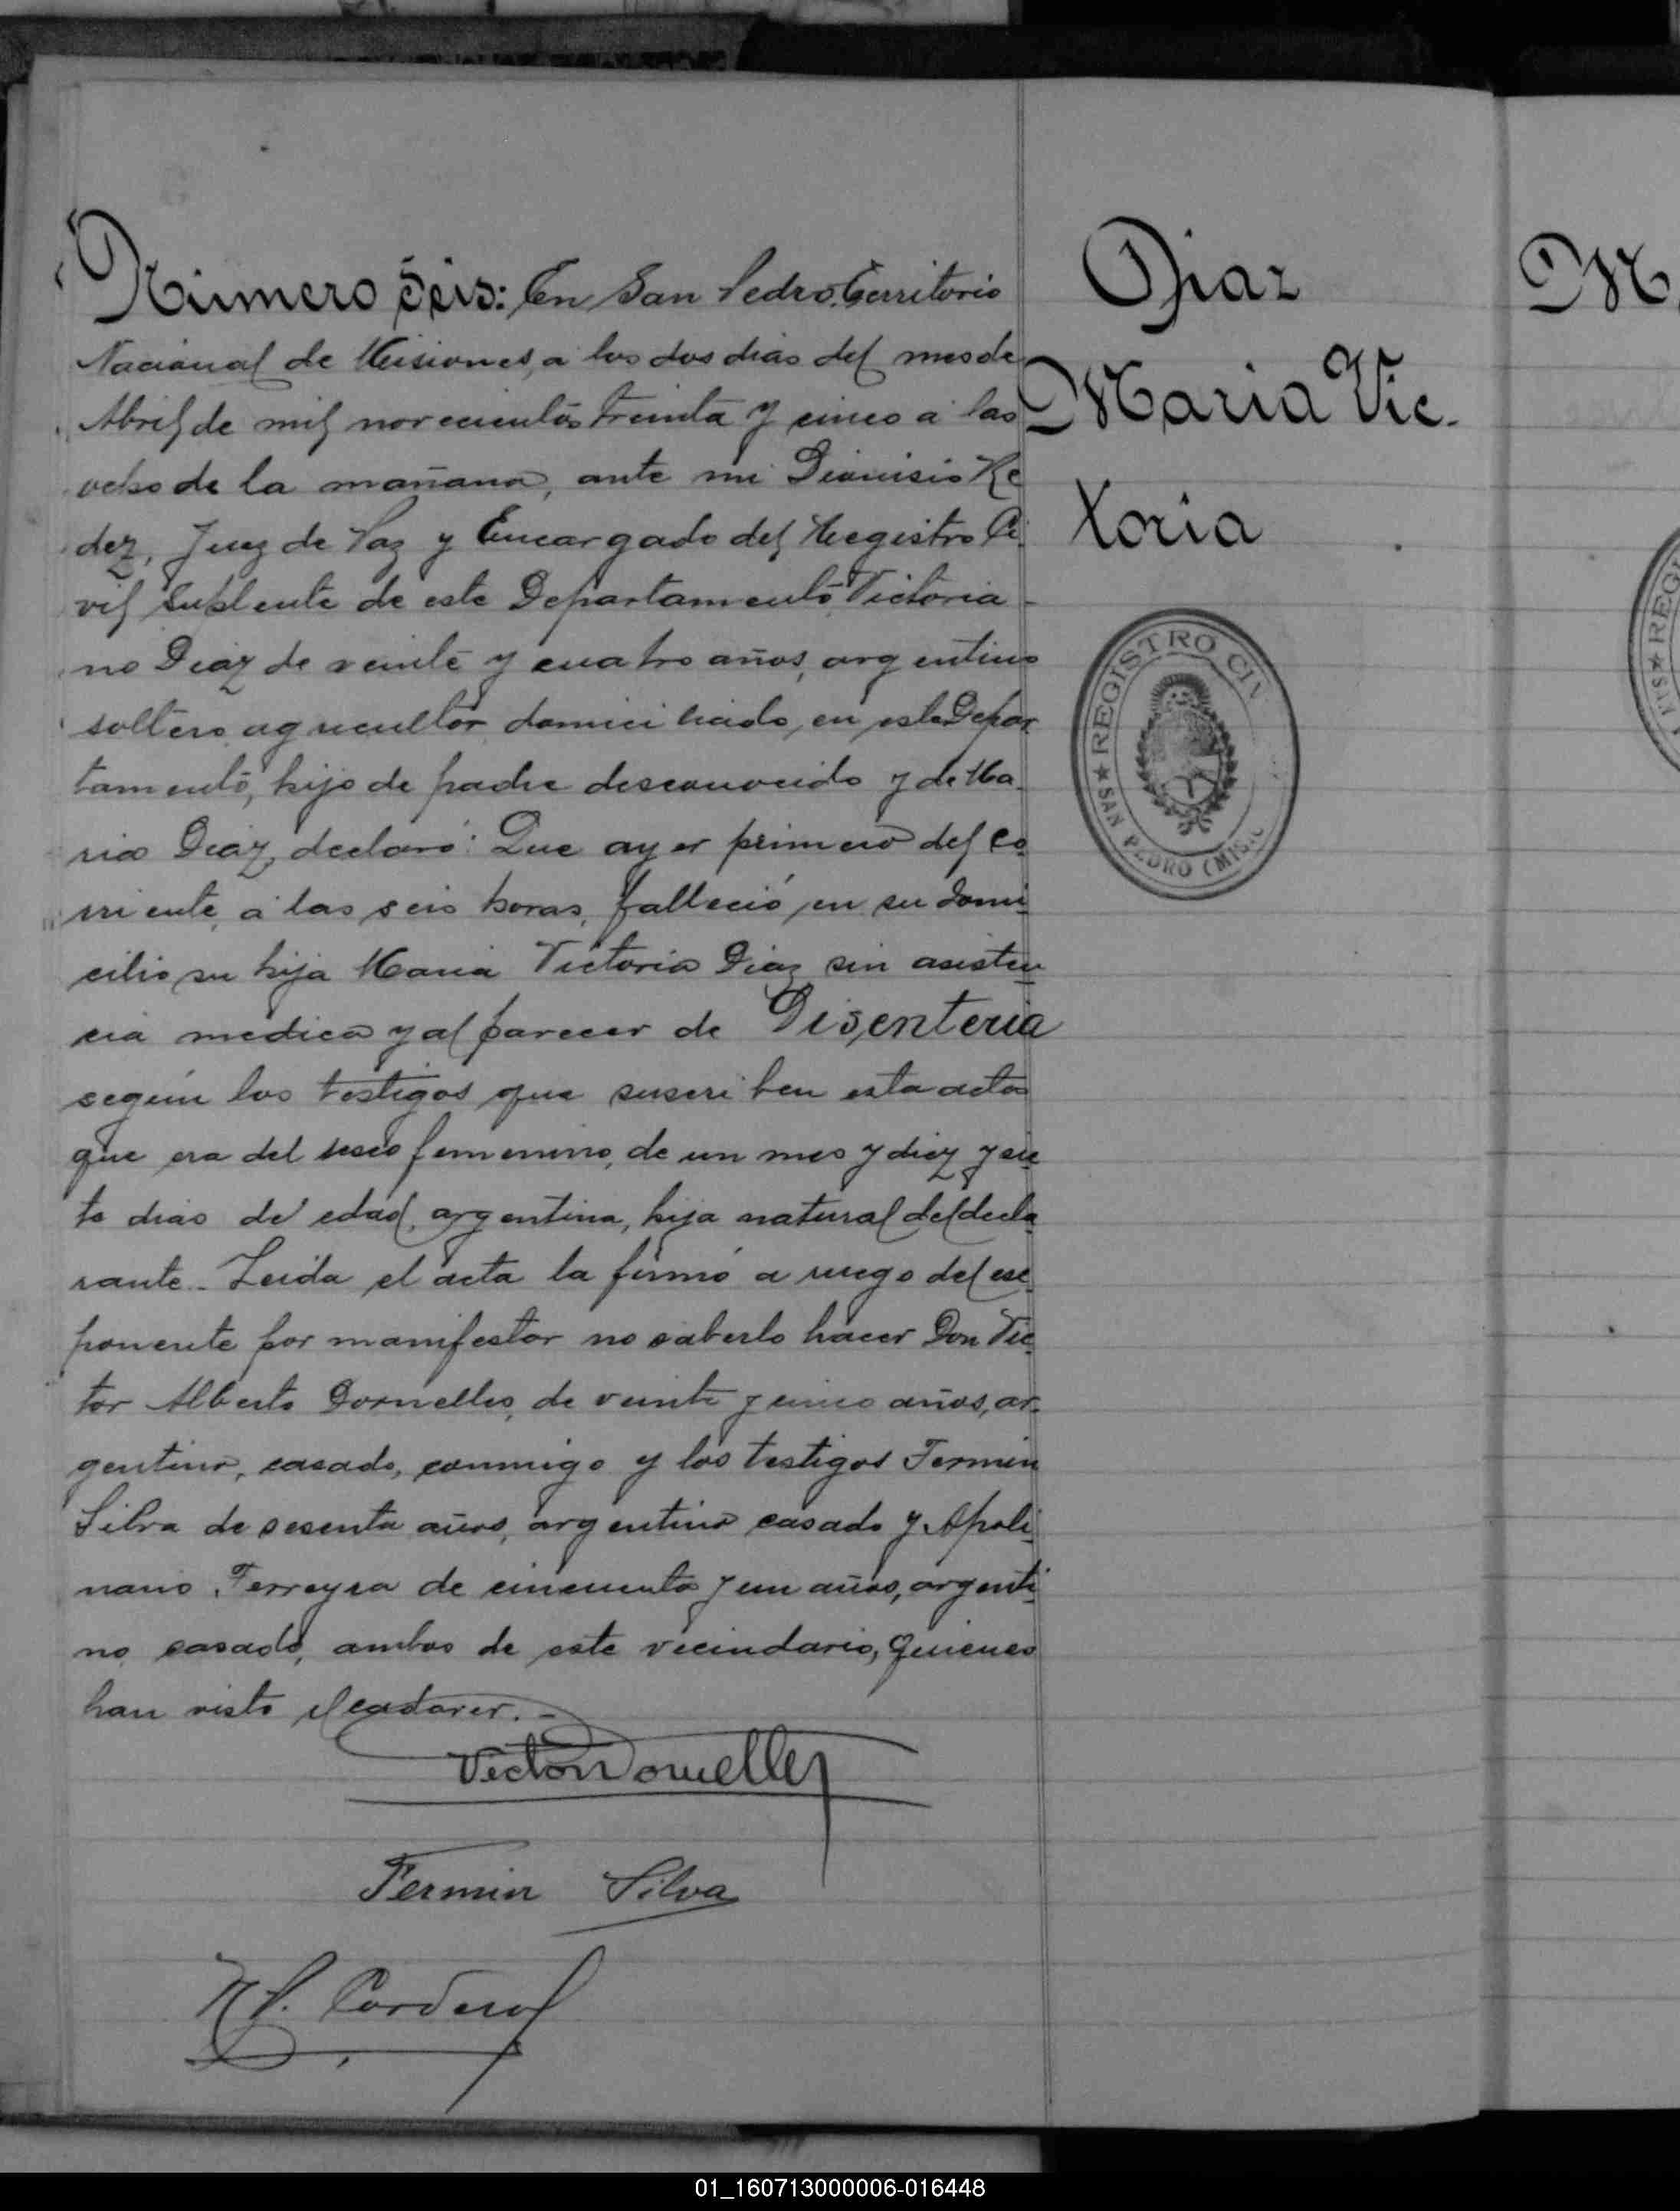 Número Seis: En San Pedro, Territorio
Nacional de Misiones, a los dos dias del mes de
Abril de mil novecientos treinta y cinco a las
ocho de la mañana, ante mi Dionisio Re
dez, Juez de Paz y Encargado del Registro Ci
vil Suplente de este Departamento Victoria
no Diaz de veinte y cuatro años, argentino
soltero agricultor domiciliado, en este Depar
tamento, hijo de padre desconocido y de Ma
ria Diaz, declaró: Que ayer primero del co
rriente, a las seis horas, falleció en su domi
cilio su hija Maria Victoria Diaz sin asisten
cia medica y al parecer de Disenteria
según los testigos que suscriben esta acta
que era del sexo femenino, de un mes y diez y sie
te dias de edad, argentina, hija natural del decla
rante. Leida el acta la firmó a ruego del ex
ponente por manifestar no saberlo hacer Don Vic
tor Alberto Dornelles, de veinte y cinco años, ar
gentino, casado, conmigo y los testigos Fermin
Silva de sesenta años, argentino casado y Apoli
nario Ferreyra de cincuenta y un años, argenti
no casado, ambos de este vecindario, quienes
han visto el cadaver. -
Victor Dornelles
Fermin Silva
Cordero
Diaz
Maria Vic-
toria
REGISTRO CIV
★ SAN PEDRO (MIS.
M
★ REG
01_160713000006-016448